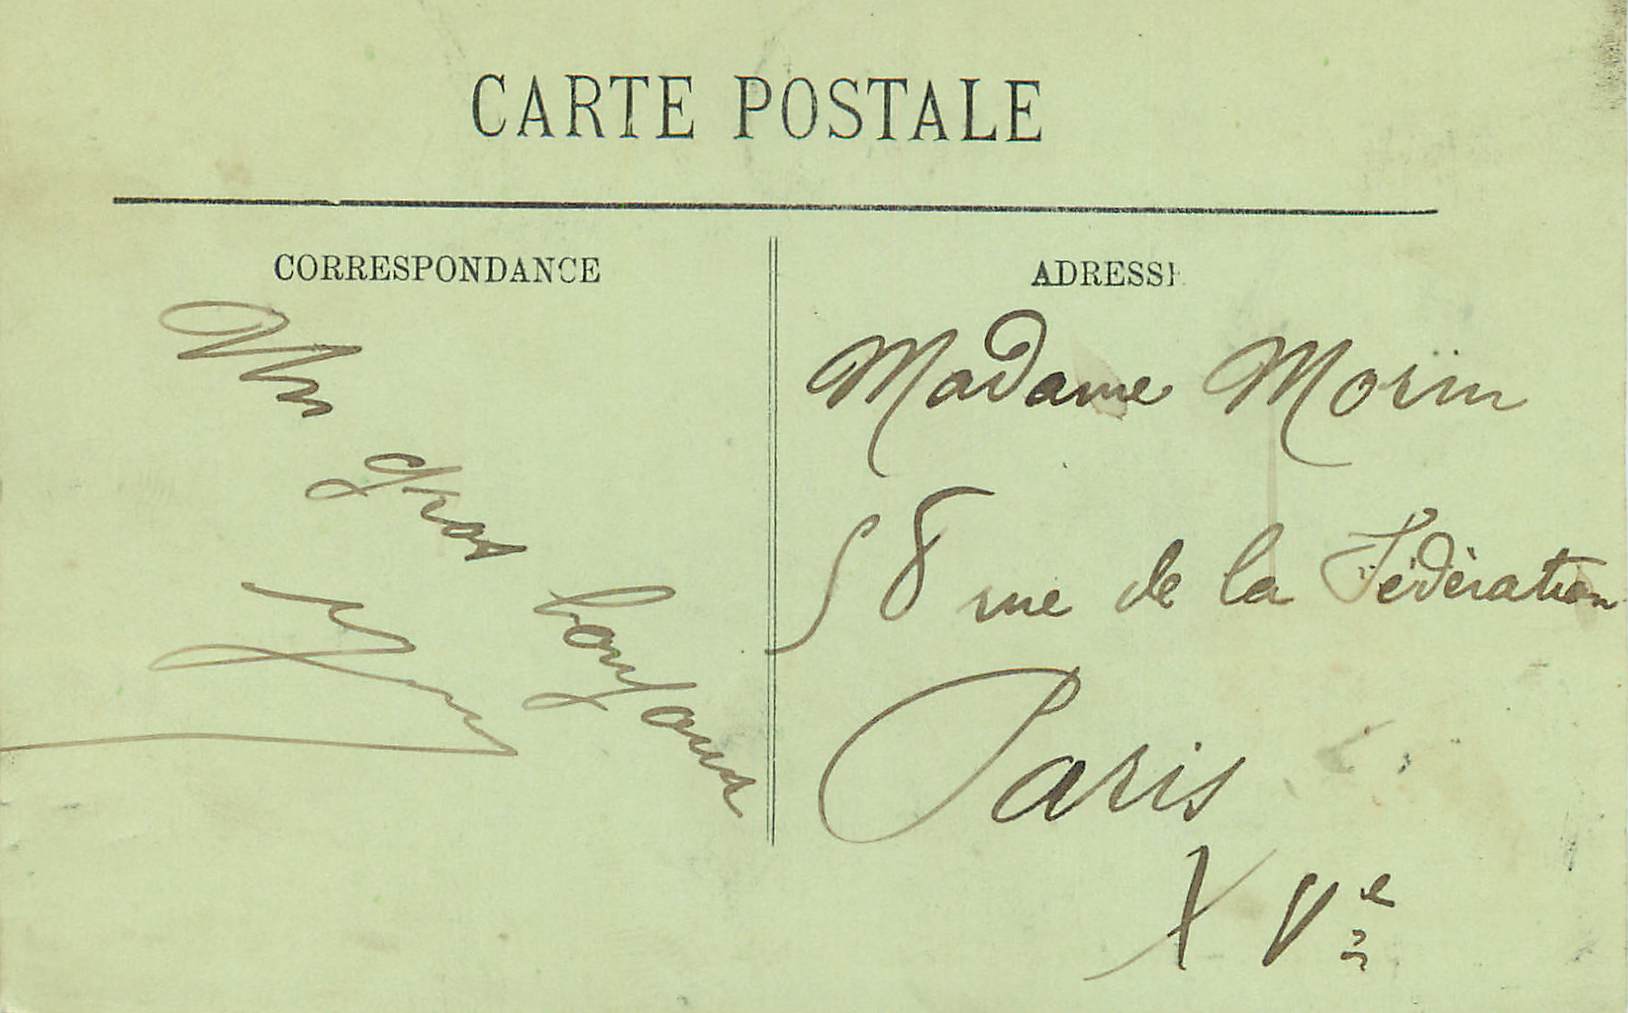 CARTE POSTALE
CORRESPONDANCE
Un
gros
bonjour
ADRESSE
Madame Morin
58 rue de la Fédération
Paris
XVe